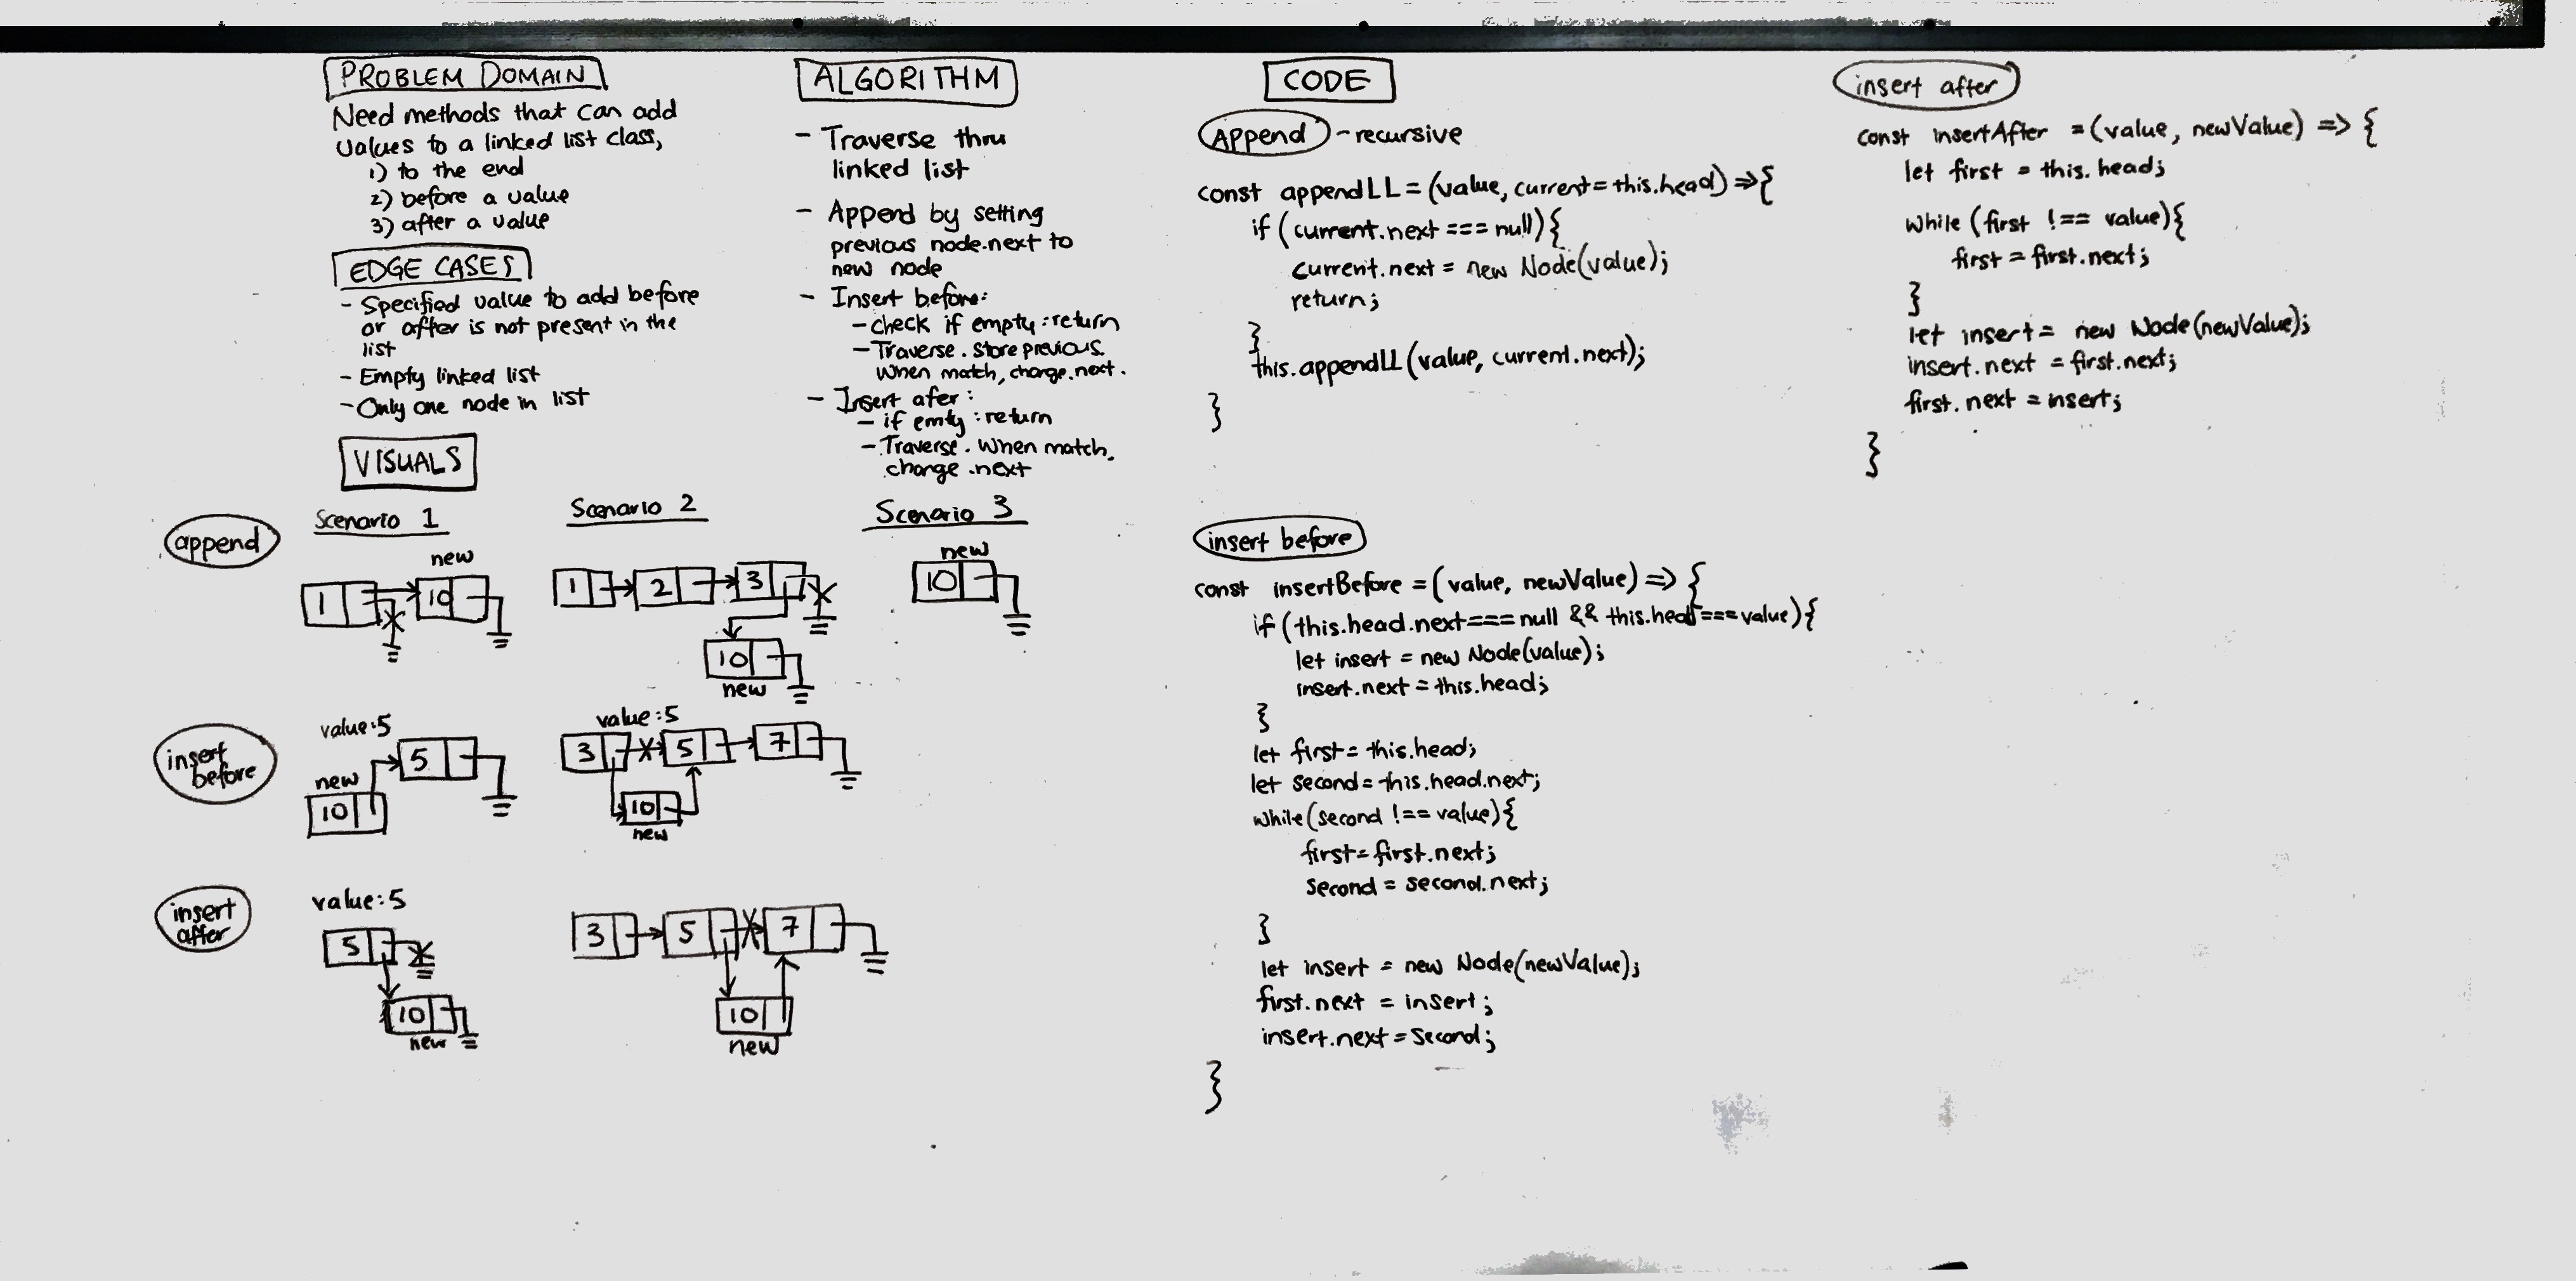 PROBLEM DOMAIN
Need methods that can add
values to a linked list class,
1) to the end
2) before a value
3) after a value
EDGE CASES
- Specified value to add before
or after is not present in the
list
- Empty linked list
- Only one node in list
ALGORITHM
- Traverse thru
linked list
- Append by setting
previous node.next to
new node
- Insert before:
- check if empty : return
- Traverse. Store previous.
When match, change .next.
- Insert afer :
- if emty : return
- Traverse. When match,
change .next
VISUALS
append
Scenario 1
new
1 10
Scenario 2
1 2 3
10
new
Scenario 3
new
10
insert
before
value:5
5
new
10
value:5
3 5 7
10
new
insert
after
value:5
5
10
new
3 5 7
10
new
CODE
Append - recursive
const appendLL = (value, current = this.head) => {
if (current.next === null) {
current.next = new Node(value);
return;
}
this.appendLL(value, current.next);
}
insert before
const insertBefore = (value, newValue) => {
if (this.head.next === null && this.head === value) {
let insert = new Node(value);
insert.next = this.head;
}
let first = this.head;
let second = this.head.next;
while (second !== value) {
first = first.next;
second = second.next;
}
let insert = new Node(newValue);
first.next = insert;
insert.next = second;
}
insert after
const insertAfter = (value, newValue) => {
let first = this.head;
while (first !== value) {
first = first.next;
}
let insert = new Node(newValue);
insert.next = first.next;
first.next = insert;
}